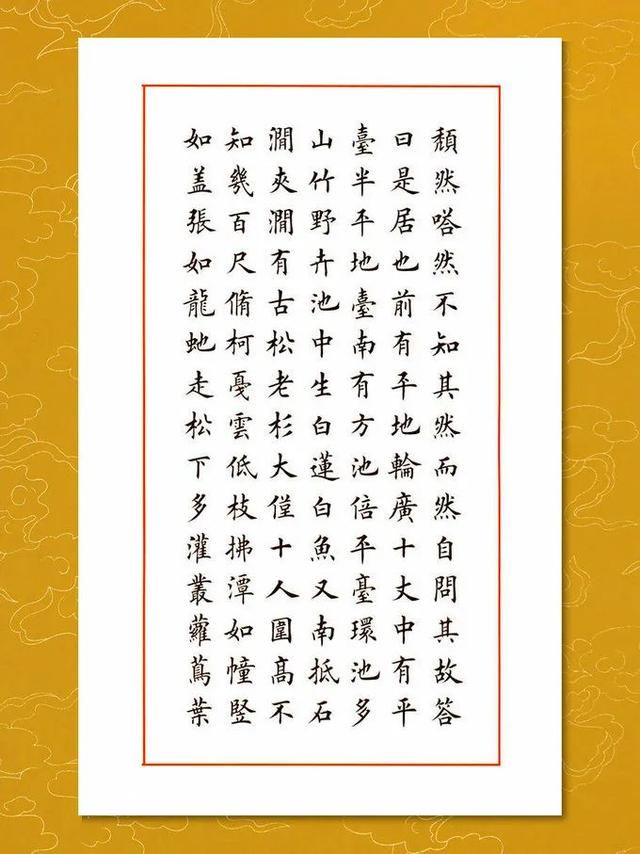 頹然嗒然不知其然而然自問其故答
曰是居也前有平地輪廣十丈中有平
臺半平地臺南有方池倍平臺環池多
山竹野卉池中生白蓮白魚又南抵石
澗夾澗有古松老杉大僅十人圍高不
知幾百尺脩柯戛雲低枝拂潭如幢竪
如盖張如龍虵走松下多灌叢蘿蔦葉